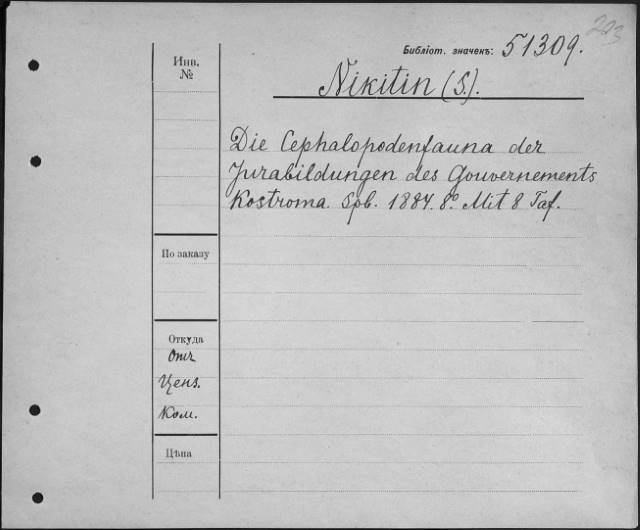 203
Библіот. значекъ: 51309.
Инв.
№
Nikitin (S.).
Die Cephalopodenfauna der
Jurabildungen des Gouvernements
Kostroma. Spb. 1884. 8º Mit 8 Taf.
По заказу
Откуда
Отъ
Ценз.
Ком.
Цѣна